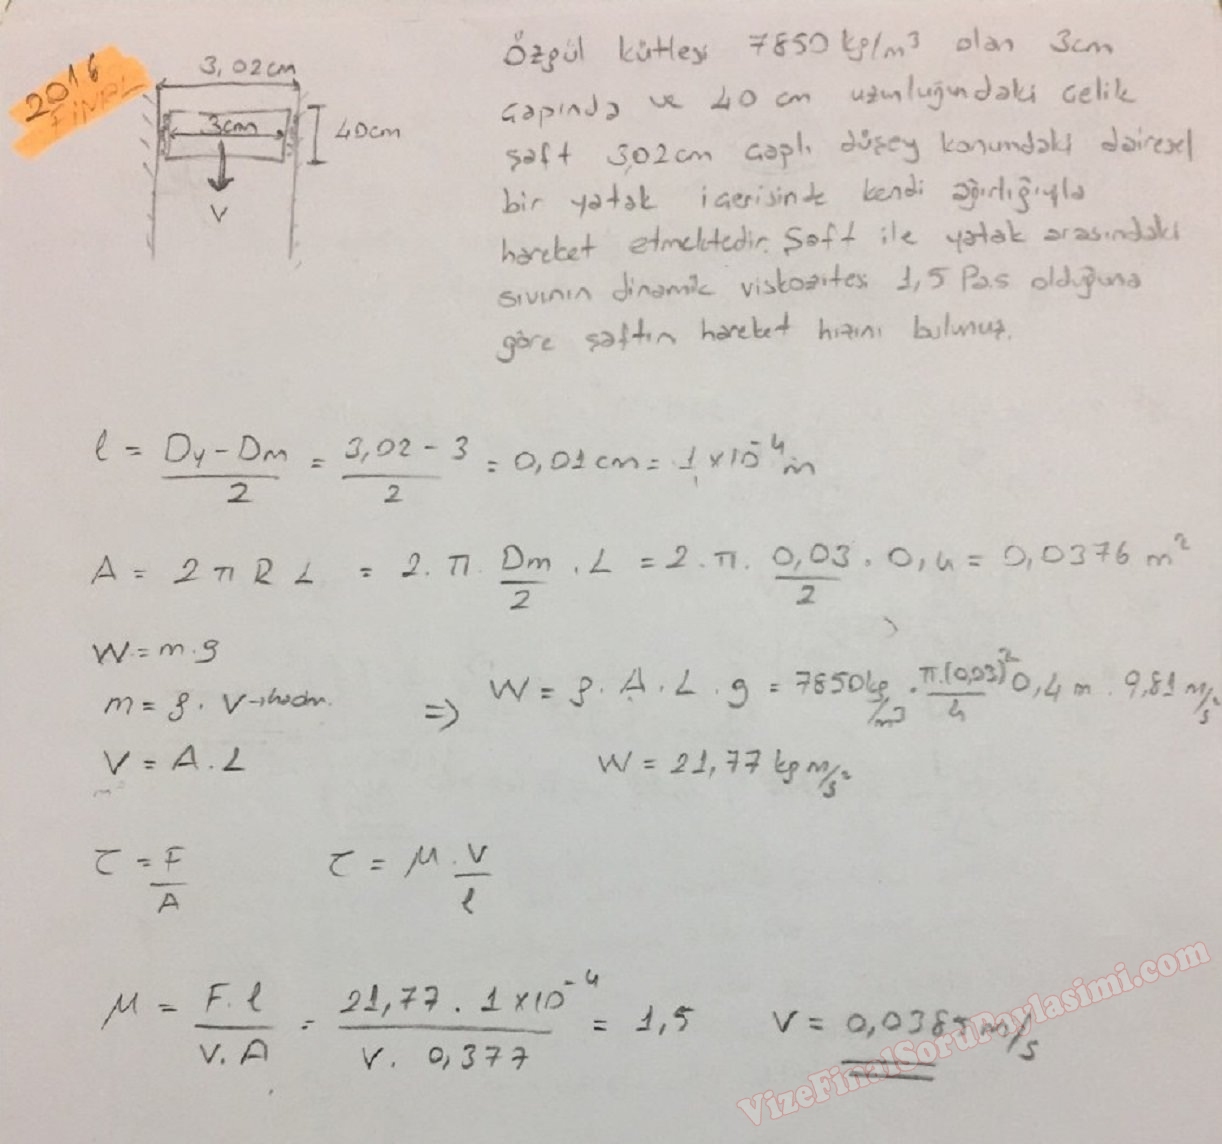 2016
FİNAL
3,02cm
3cm
40cm
V
Özgül kütlesi 7850 kg/m³ olan 3cm
çapında ve 40 cm uzunluğundaki çelik
şaft 3,02cm çaplı düşey konumdaki dairesel
bir yatak içerisinde kendi ağırlığıyla
hareket etmektedir. Şaft ile yatak arasındaki
sıvının dinamik viskozitesi 1,5 Pa.s olduğuna
göre şaftın hareket hızını bulunuz.
l = Dy - Dm / 2 = 3,02 - 3 / 2 = 0,01 cm = 1 x 10⁻⁴ m
A = 2 π R L = 2. π. Dm / 2 . L = 2. π. 0,03 / 2 . 0,4 = 0,0376 m²
W = m.g
m = ρ. V → hacim.
V = A.L
m²
=> W = ρ. A. L. g = 7850 kg/m³ . π.(0,03)² / 4 0,4 m . 9,81 m/s²
W = 21,77 kg m/s²
τ = F / A τ = μ. V / l
μ = F. l / V. A = 21,77 . 1 x 10⁻⁴ / V. 0,377 = 1,5 V = 0,0385 m/s
VizeFinalSoruPaylasimi.com